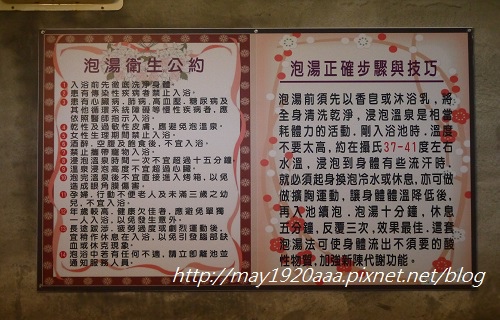 泡湯衛生公約
1 入浴前先徹底洗淨身體。
2 患有傳染性疾病者禁止入浴。
3 患有心臟病,肺病,高血壓,糖尿病及
其他循環系統障礙等慢性疾病者,應
依照醫師指示入浴。
4 乾性及過敏性皮膚,應避免泡溫泉。
5 女性生理期應避免入浴。
6 酒醉,空腹及飽食後,不宜入浴。
7 禁止攜帶寵物入浴。
8 浸泡溫泉時間一次不宜超過十五分鐘
9 溫泉浸泡高度不宜超過心臟。
10 泡完溫泉後不宜直接進入烤箱,以免
造成眼角膜傷害。
11 孕婦,行動不便老人及未滿三歲之幼
兒,不宜入浴。
12 年歲較高,健康欠佳者,應避免單獨
一人入浴,以免發生意外。
13 長途跋涉,疲勞過度或劇烈運動後,
宜稍作休息在入浴,以免引發腦部缺
血或休克現象。
14 泡浴中若有任何不適,請立即離池並
通知服務人員。
泡湯正確步驟與技巧
泡湯前須先以香皂或沐浴乳,將
全身清洗乾淨,浸泡溫泉是相當
耗體力的活動,剛入浴池時,溫度
不要太高,約在攝氏37-41度左右
水溫,浸泡到身體有些流汗時,
就必須起身換泡冷水或休息,亦可做
做擴胸運動,讓身體體溫降低後,
再入池續泡.泡湯十分鐘,休息
五分鐘,反覆三次,效果最佳.這套
泡湯法可使身體流出不須要的酸
性物質,加強新陳代謝功能。
http://may1920aaa.pixnet.net/blog